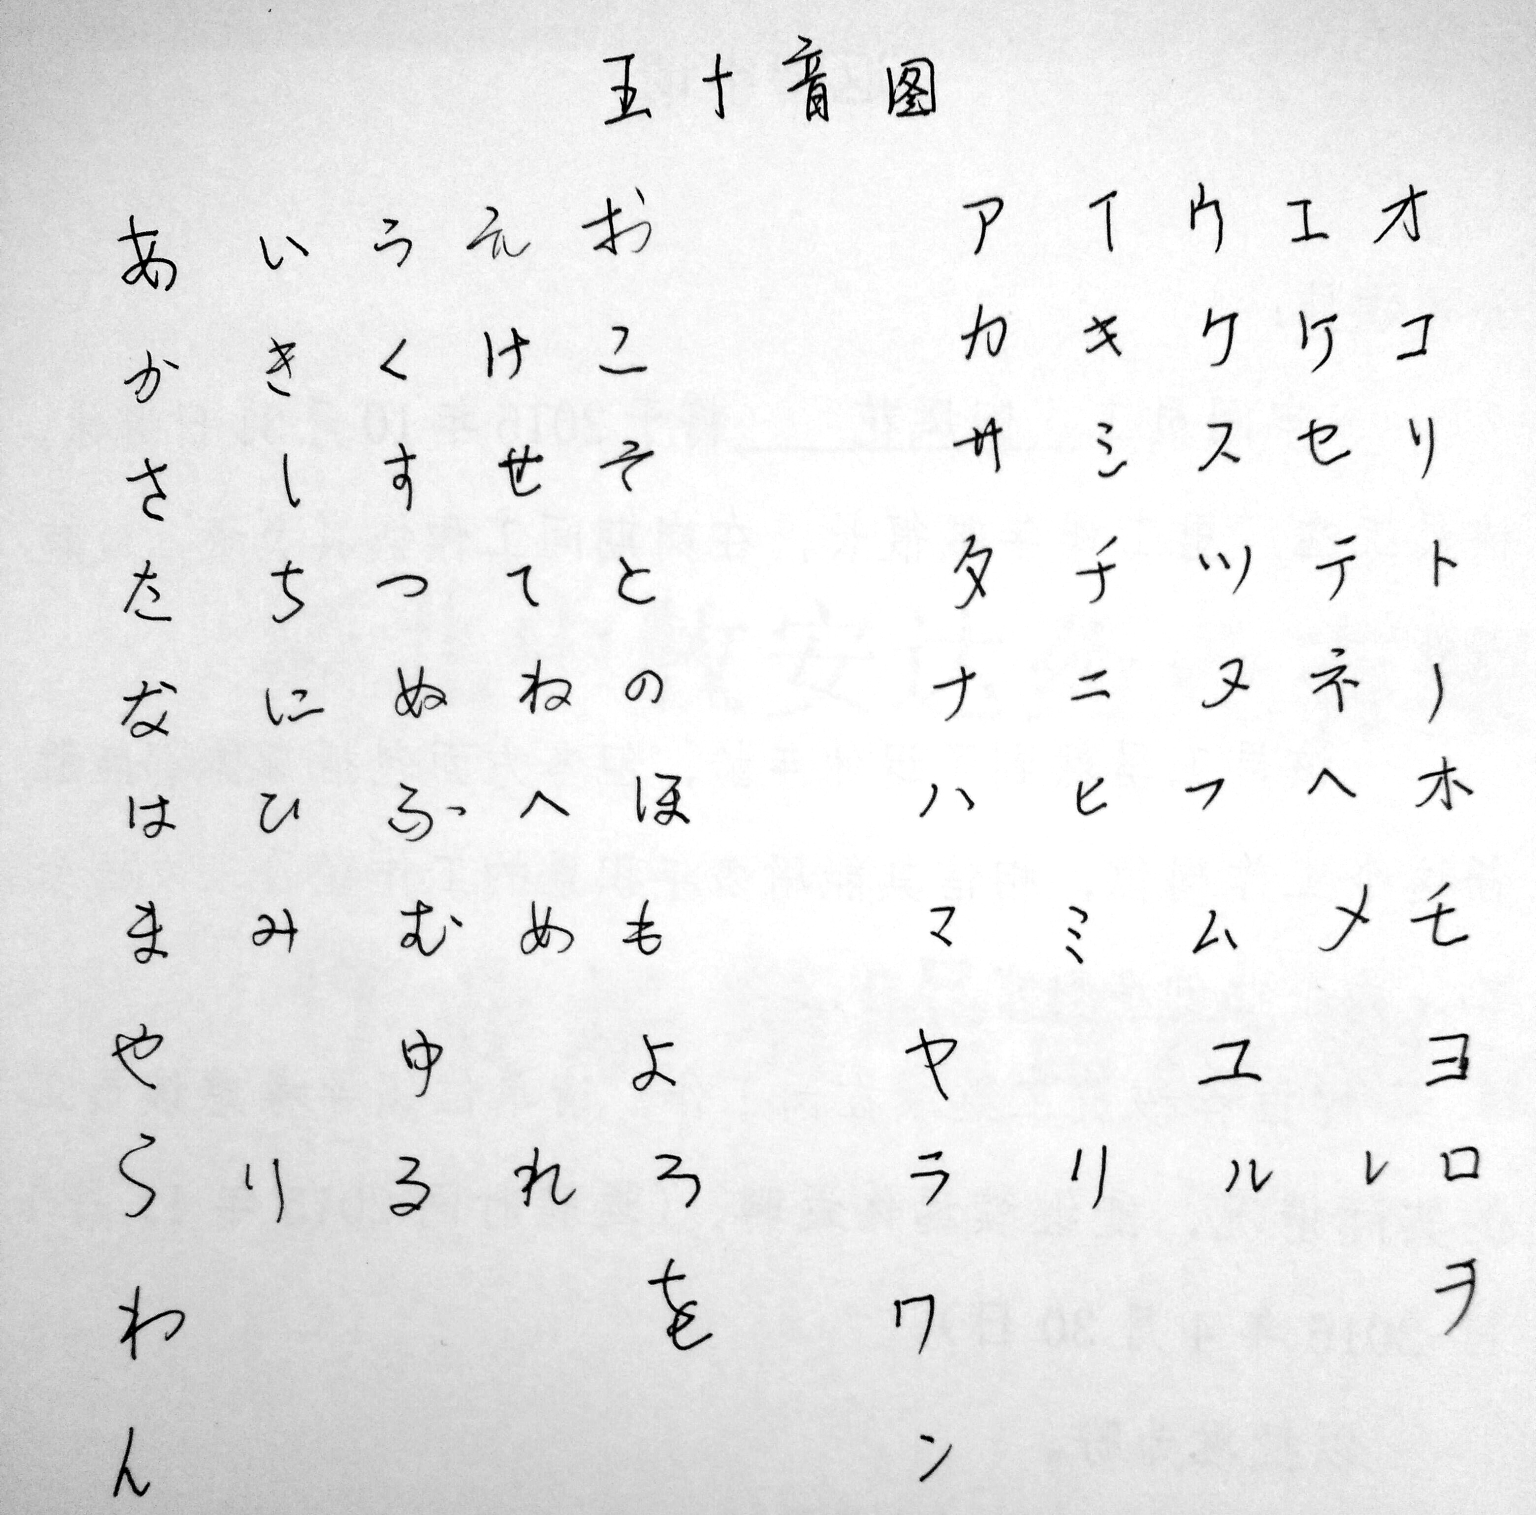 五十音图
あ い う え お ア イ ウ エ オ
か き く け こ カ キ ク ケ コ
さ し す せ そ サ シ ス セ ソ
た ち つ て と タ チ ツ テ ト
な に ぬ ね の ナ ニ ヌ ネ ノ
は ひ ふ へ ほ ハ ヒ フ ヘ ホ
ま み む め も マ ミ ム メ モ
や ゆ よ ヤ ユ ヨ
ら り る れ ろ ラ リ ル レ ロ
わ を ワ ヲ
ん ン